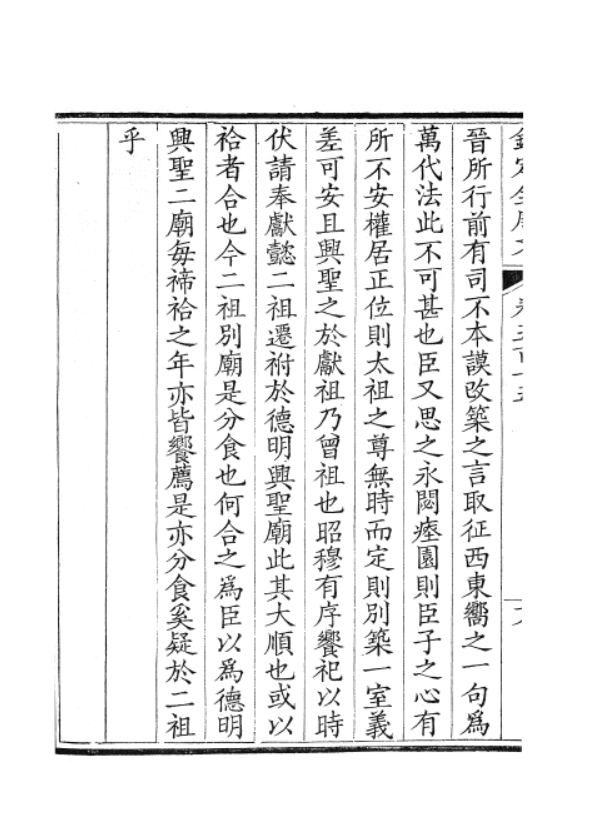 晉所行前有司不本謨改築之言取征西東嚮之一句爲
萬代法此不可甚也臣又思之永閟瘞園則臣子之心有
所不安權居正位則太祖之尊無時而定則別築一室義
差可安且興聖之於獻祖乃曾祖也昭穆有序饗祀以時
伏請奉獻懿二祖遷祔於德明興聖廟此其大順也或以
祫者合也今二祖別廟是分食也何合之爲臣以爲德明
興聖二廟每禘祫之年亦皆饗薦是亦分食奚疑於二祖
乎